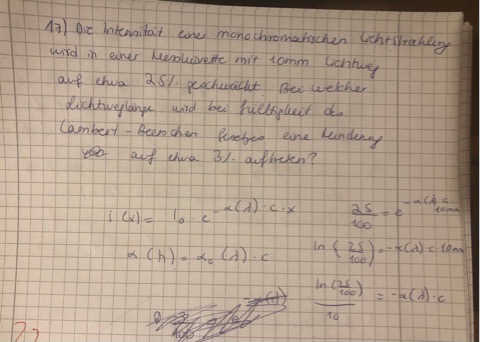 17) Die Intensität einer monochromatischen Lichtstrahlung
wird in einer Messküvette mit 10mm Lichtweg
auf etwa 25% geschwächt. Bei welcher
Lichtweglänge wird bei Gültigkeit des
Lambert-Beerschen Gesetzes eine Minderung
auf etwa 3% auftreten?
I(x) = I₀ · e^{-α(λ)·c·x}
25/100 = e^{-α(λ)·c·10mm}
α(λ) = α₀(λ)·c
ln(25/100) = -α(λ)·c·10mm
ln(25/100)/10 = -α(λ)·c